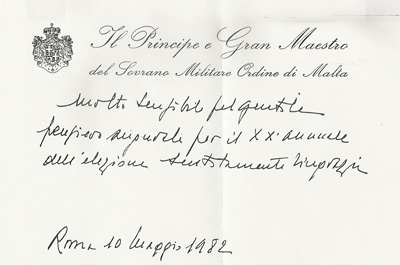 Il Principe e Gran Maestro
del Sovrano Militare Ordine di Malta
Molto sensibile pel gentile
pensiero augurale per il XX° annuale
dell'elezione sentitamente ringrazia
Roma 10 Maggio 1982